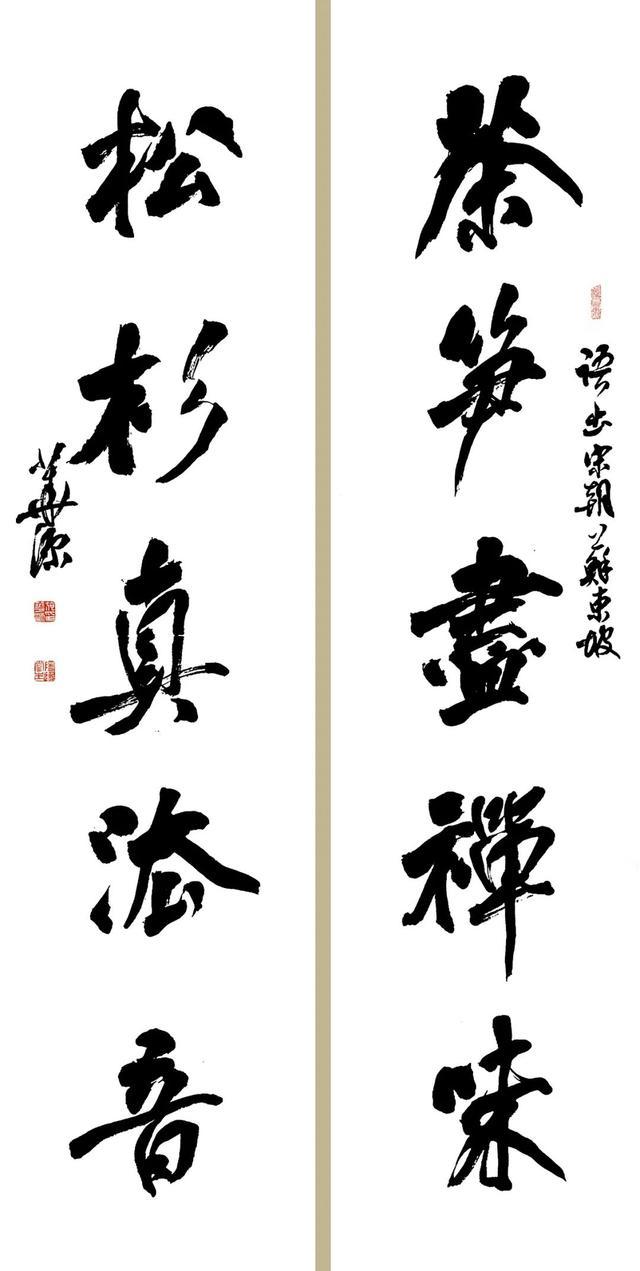 語出宋朝蘇東坡
茶笋盡禪味
松杉真法音
華源